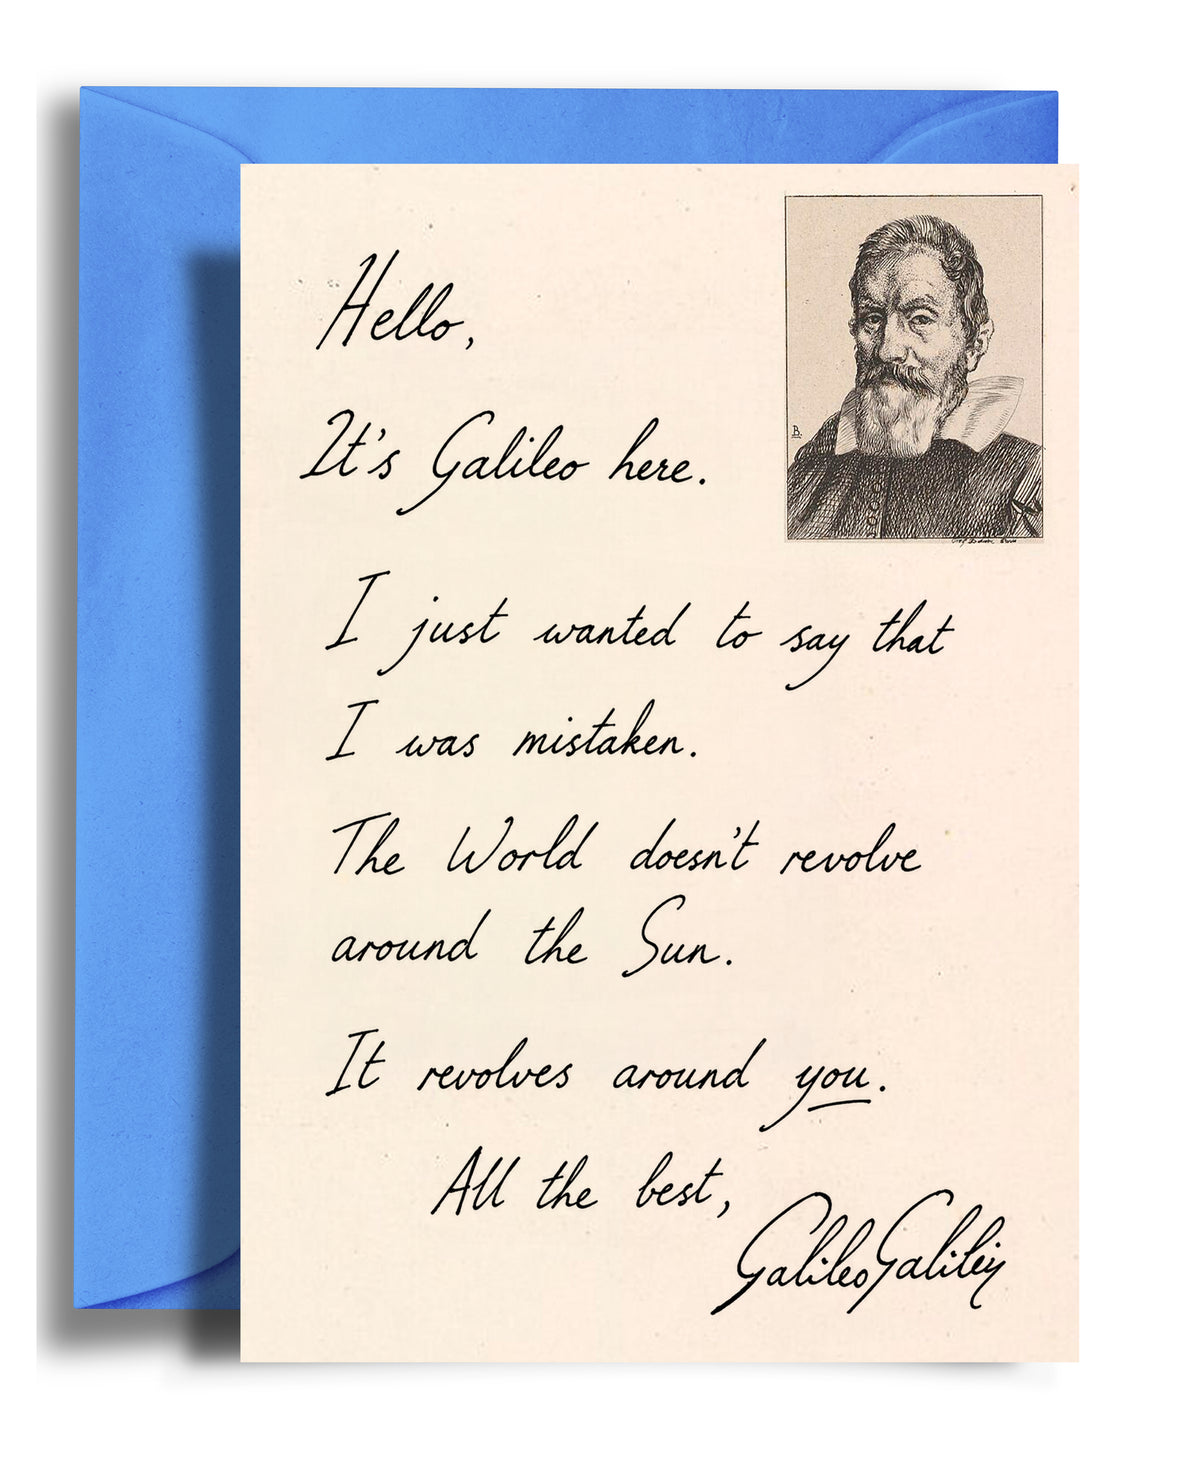 Hello,
It's Galileo here.
I just wanted to say that
I was mistaken.
The World doesn't revolve
around the Sun.
It revolves around you.
All the best,
Galileo Galilei
B.